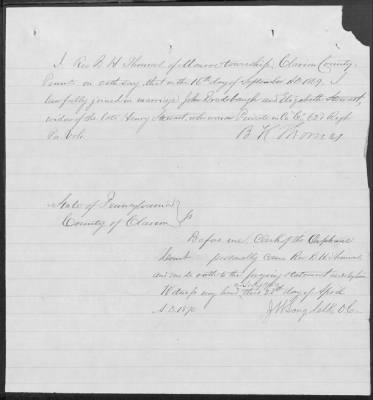 I Rev B H Thomas of Monroe township, Clarion County
Penn'a on oath say, that on the 16th day of September AD 1869. I
lawfully joined in marriage John Brodbaugh and Elizabeth Stewart,
widow of the late Henry Stewart, who was a Private in Co "C" 62d Regt
Pa Vols.
B H Thomas
State of Pennsylvania
County of Clarion } ss
Before me, Clerk of the Orphans
Court personally came Rev B H Thomas
and made oath to the foregoing statement
Witness my hand this 20th day of April
A.D. 1870
J W Longdell O.C.